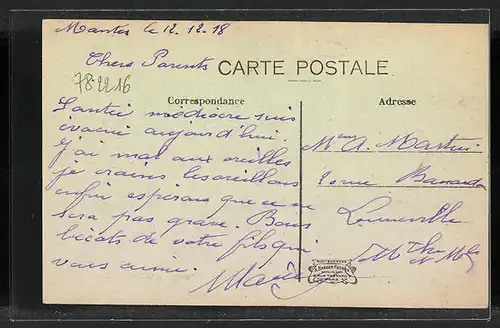 Mantes le 12.12.18
Chers Parents
782216
CARTE POSTALE
Correspondance
Adresse
Santé médiocre suis
évacué aujourd'hui.
J'ai mal aux oreilles
je crains les oreillons
enfin espérons que ce ne
sera pas grave. Bons
bécots de votre fils qui
vous aime.
A. Martin
rue
Lunéville
Mthe et Mlle